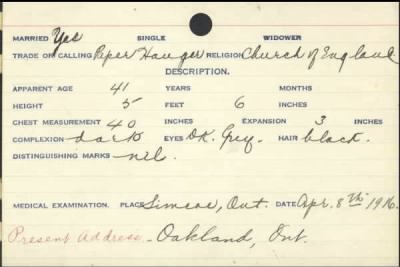 MARRIED Yes SINGLE WIDOWER
TRADE OR CALLING Paper Hanger RELIGION Church of England
DESCRIPTION.
APPARENT AGE 41 YEARS MONTHS
HEIGHT 5 FEET 6 INCHES
CHEST MEASUREMENT 40 INCHES EXPANSION 3 INCHES
COMPLEXION dark EYES Dk. Grey. HAIR black.
DISTINGUISHING MARKS nil.
MEDICAL EXAMINATION. PLACE Simcoe, Ont. DATE Apr. 8th 1916.
Present Address - Oakland, Ont.